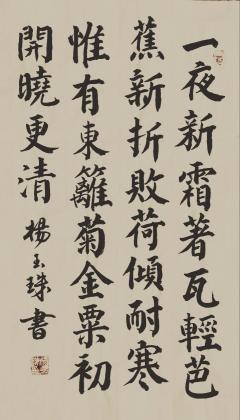 一夜新霜著瓦輕芭
蕉新折敗荷傾耐寒
惟有東籬菊金粟初
開曉更清
楊玉珠書